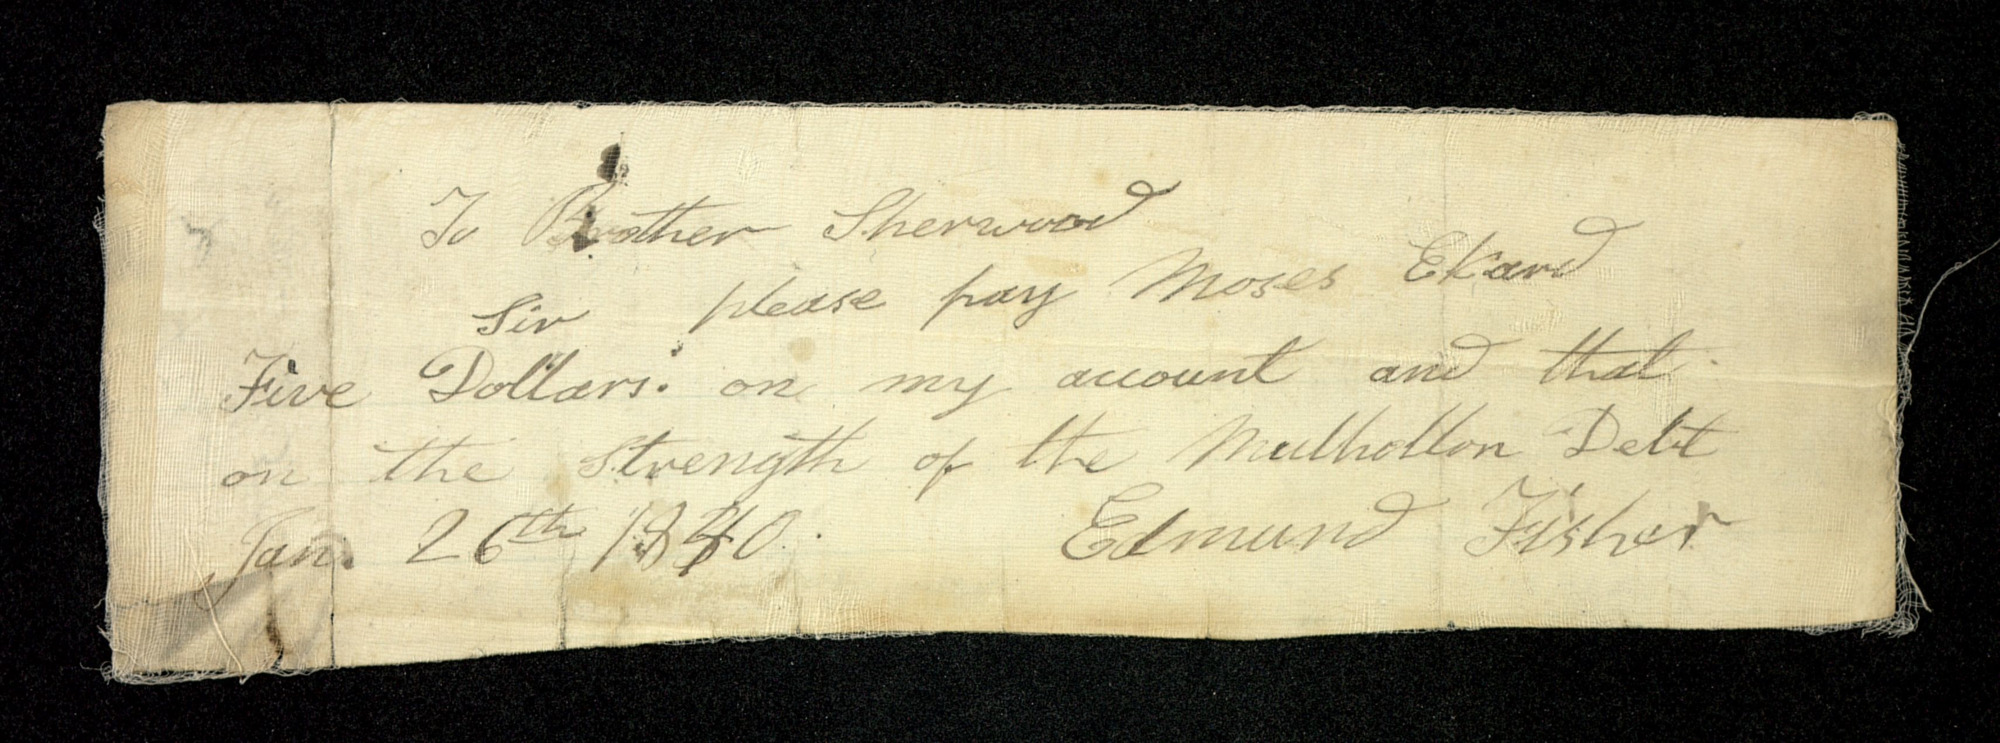 To Brother Sherwood
Sir please pay Moses Ekard
Five Dollars. on my account and that
on the strength of the Mulhollon Debt
Jan. 26th 1840. Edmund Fisher